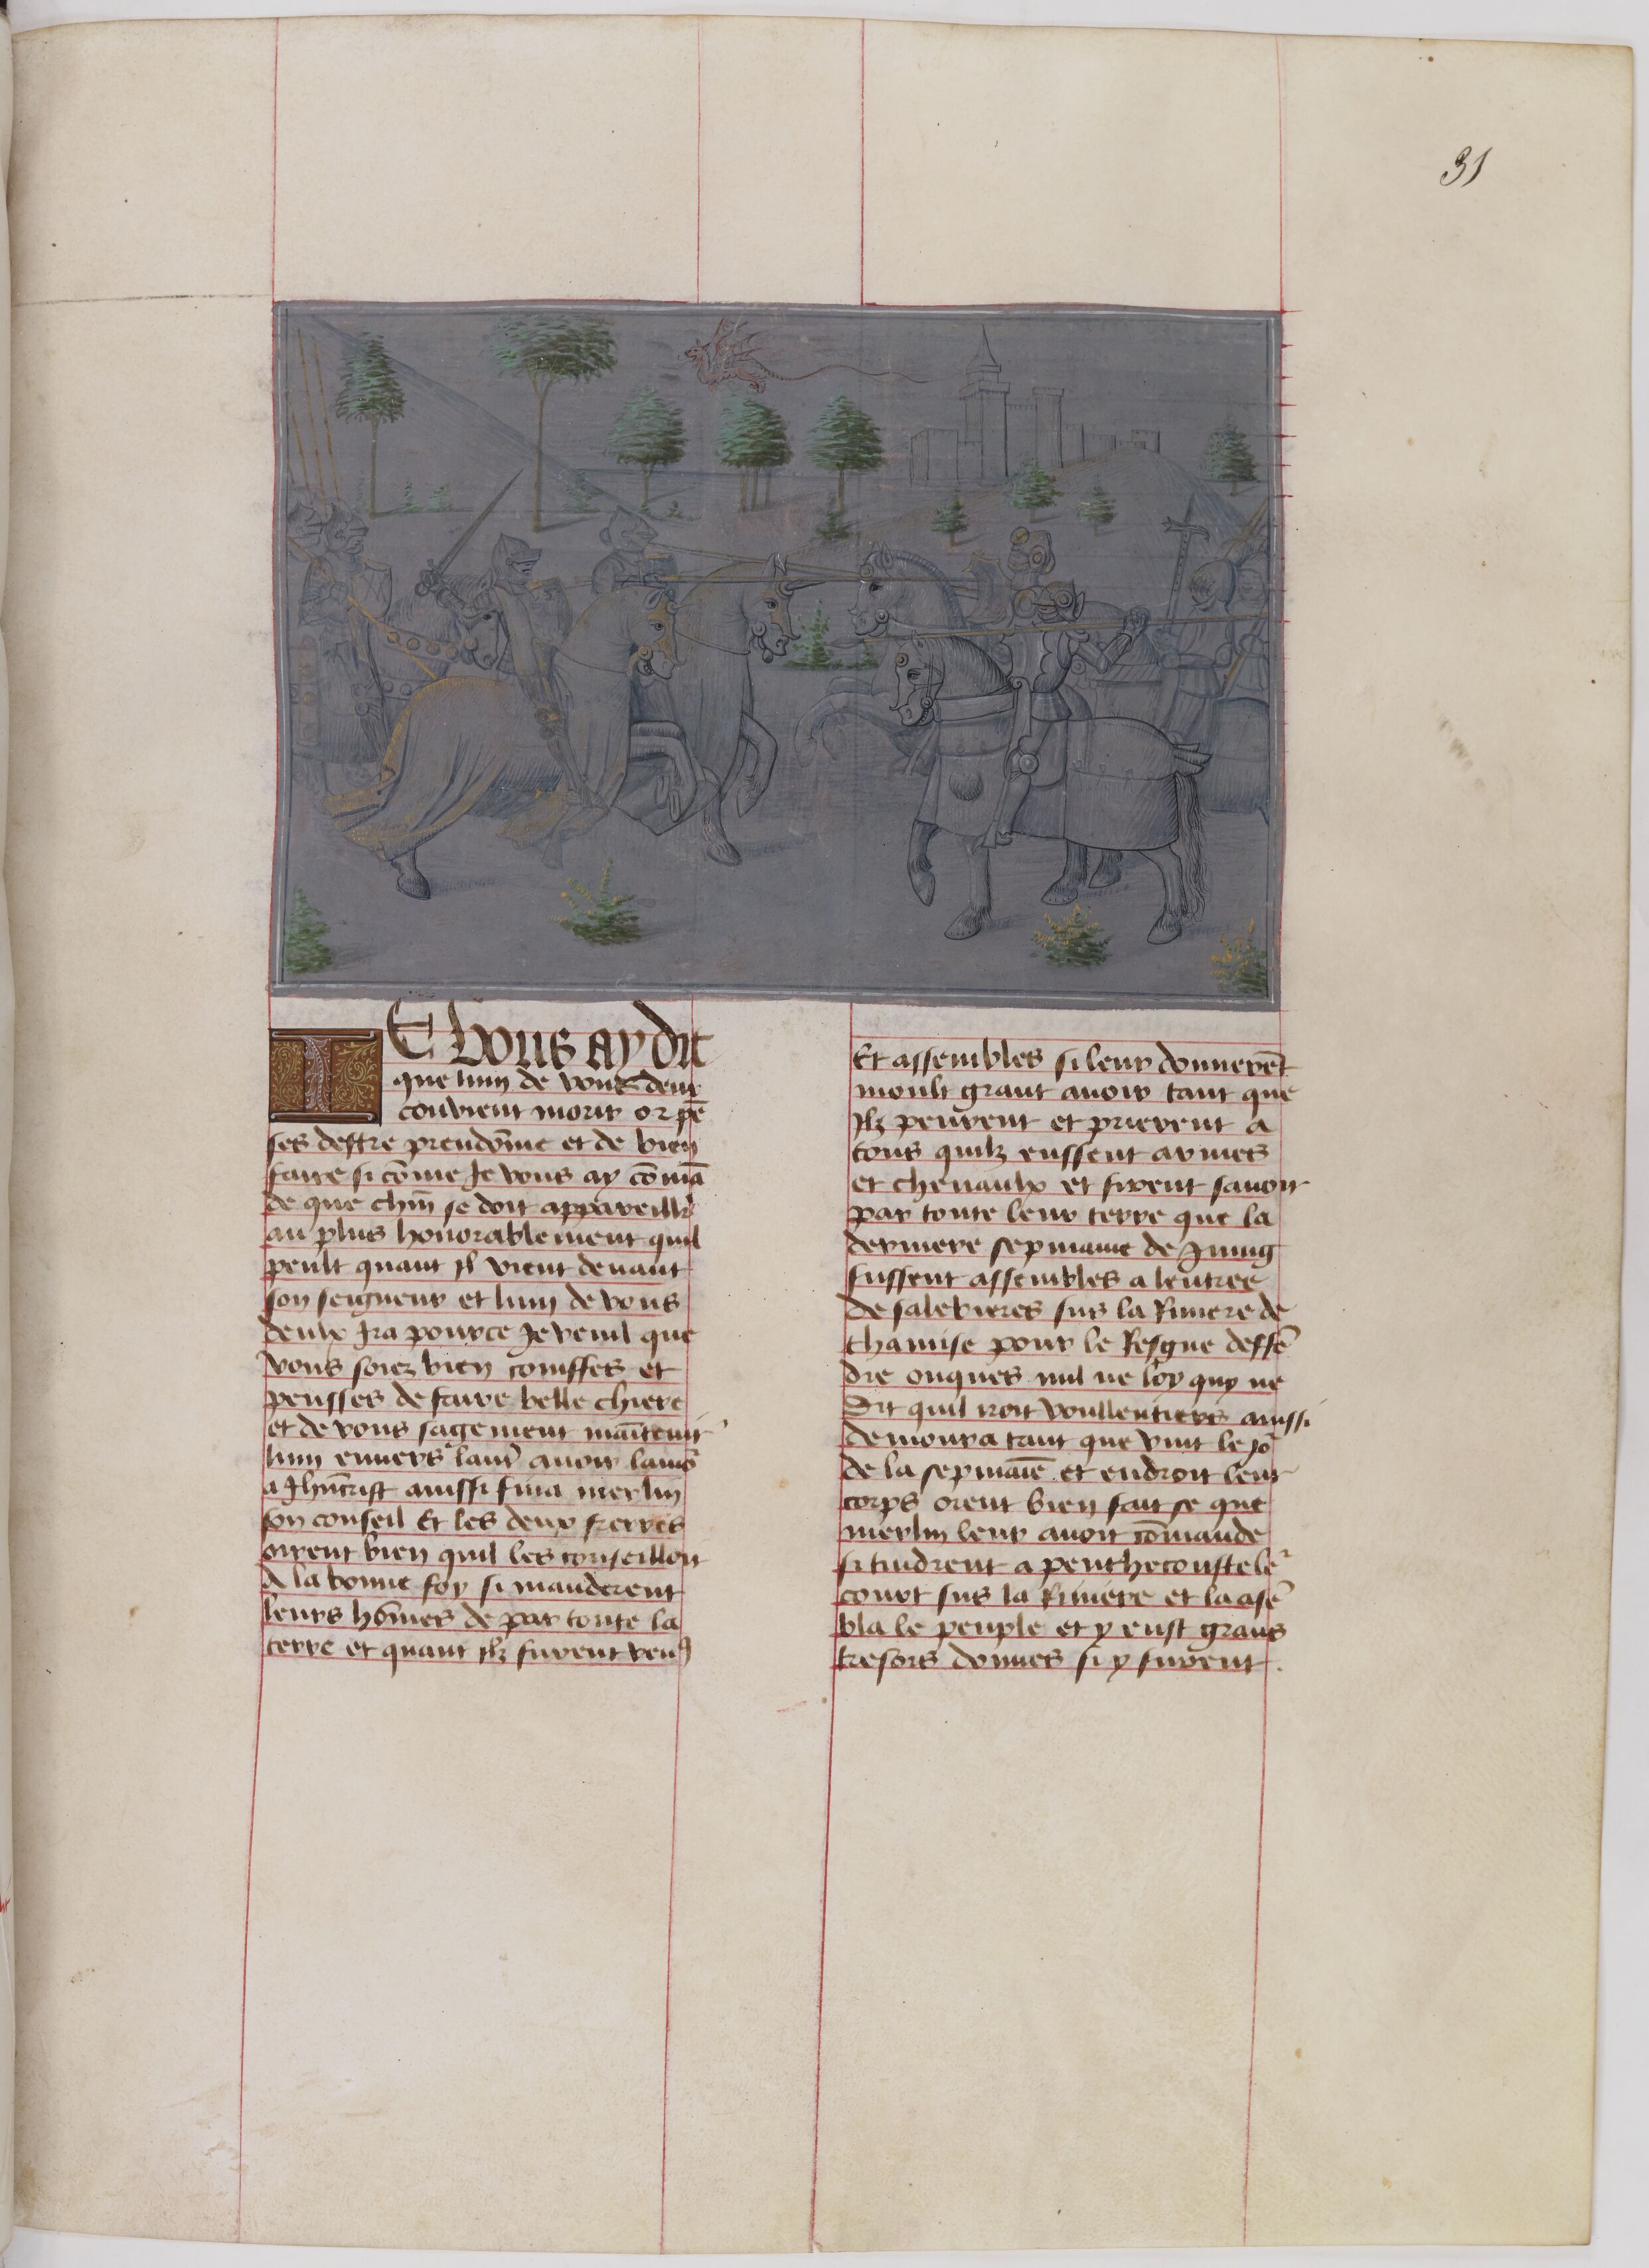 31
IE vous ay dit
que lun de vous deux
convient morir or pē
ses destre preudōme et de bien
faire si cōme Je vous ay cōmā
de que chūn se doit appareillr
au plus honorablement quil
peult quant Jl vient devant
son seigneur et lun de vous
deulx Jra pource Je veuil que
vous soiez bien confes et
pensses de faire belle chiere
et de vous sagement maītenir
lun envers lautr avoir lams
a Jhūcrist aussi fina merlin
son conseil Et les deux freres
virent bien quil les conseilloit
A la bonne foy si manderent
leurs hōmes de par toute la
terre et quant Jlz furent venꝰ
Et assembles si leur donnerēt
moult grant avoir tant que
Jlz peurent et prierent a
tous quilz eussent armes
et chevaulx et firent savoir
par toute leur terre que la
derniere sepmaine de Juing
fussent assembles a lentree
de salebieres sus la Riviere de
thamise pour le Resgne deffē
dre onques nul ne loy quy ne
Dit quil yroit voullentiers aussi
demoura tant que vint le Jor
de la sepmaīe et endroit leur
corps orent bien fait se que
merlin leur avoit cōmande
si tindrent a penthecouste leʳ
court sus la Riviere et la asē
bla le peuple et y eust grans
tresors donnes si y furent.